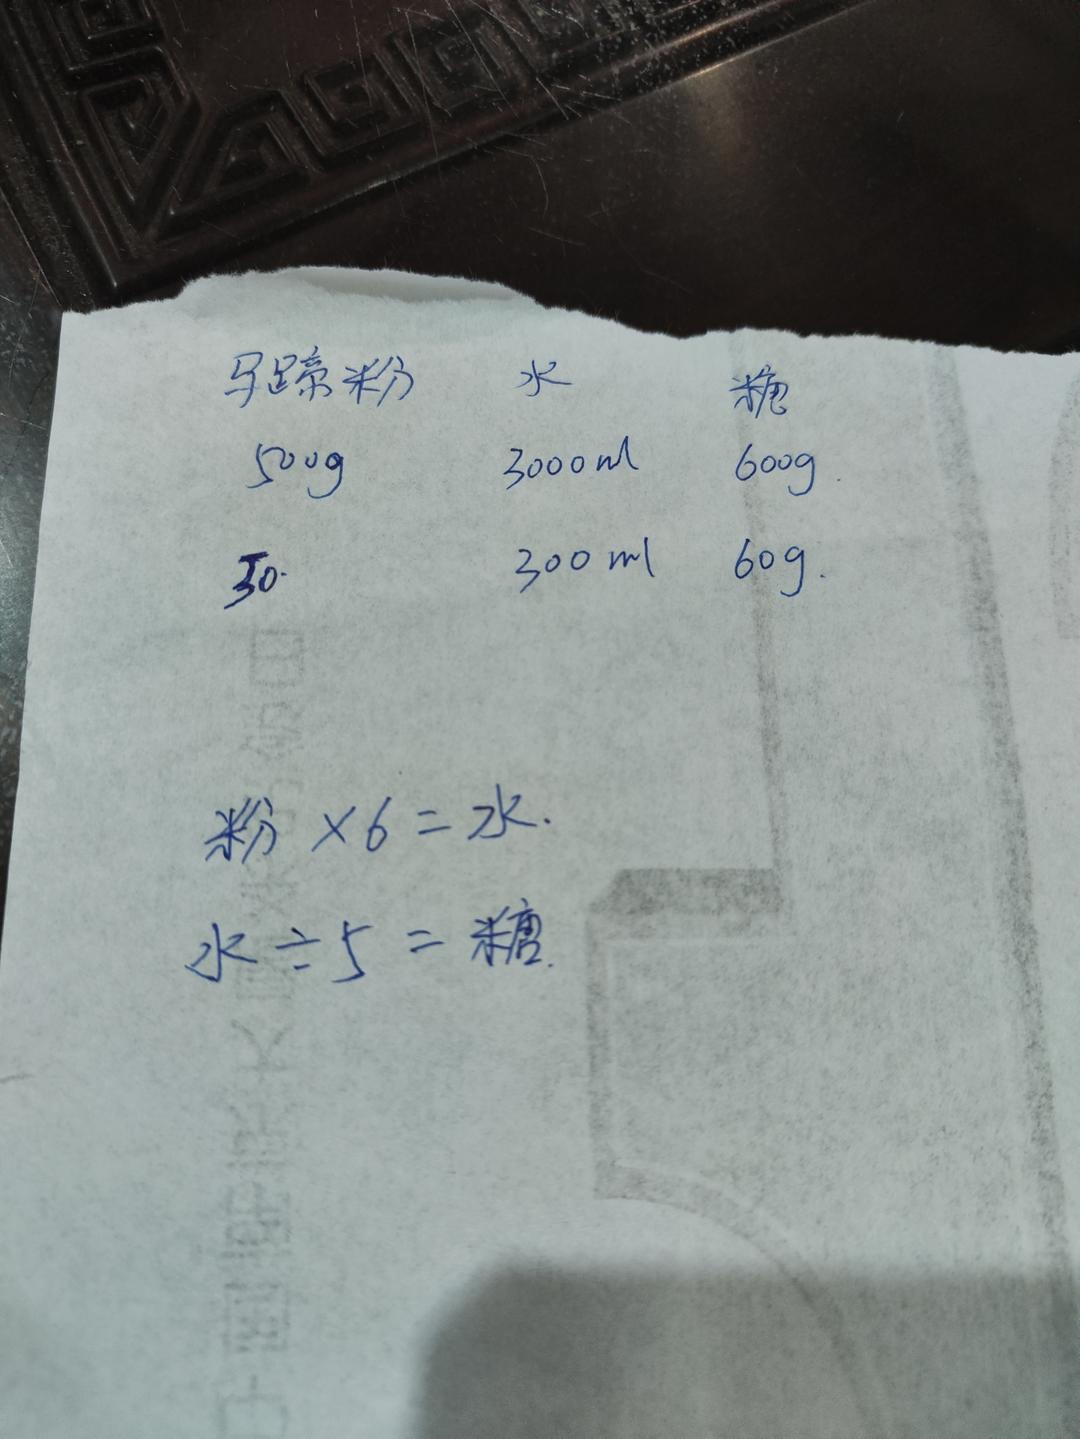 马蹄粉 水 糖
500g 3000ml 600g.
50. 300ml 60g.
粉×6=水.
水÷5=糖.